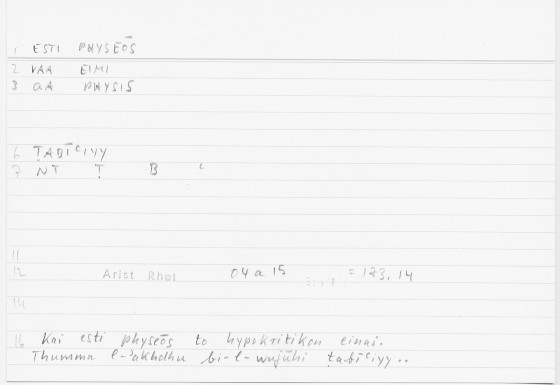 1 ESTI PHYSEŌS
2 VAA EIMI
3 aA PHYSIS
6 ṬABĪʿIYY
7 NT Ṭ B ʿ
11
12 Arist Rhet 04a15 = 173.14
14
16 Kai esti physeōs to hypokritikon einai.
Thumma l-ʾakhdhu bi-l-wujūhi ṭabīʿiyy..